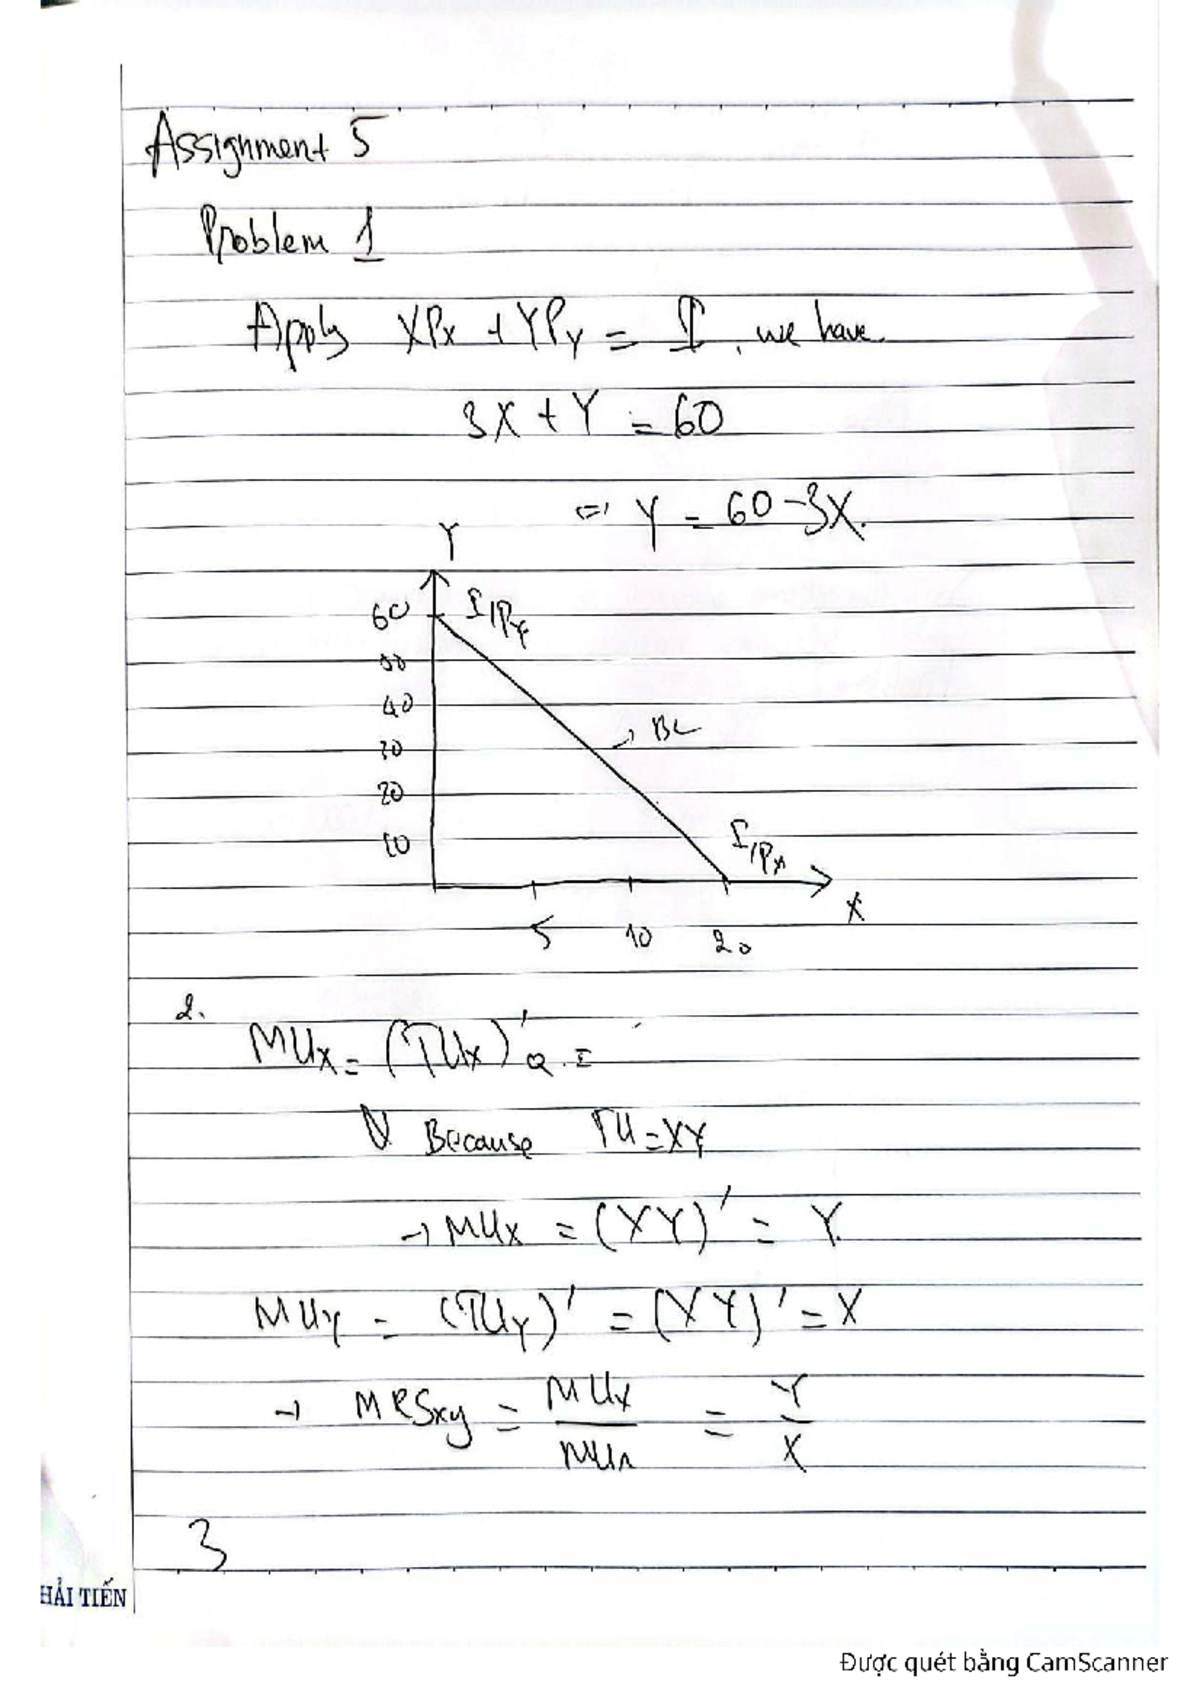 Assignment 5
Problem 1
Apply XPx + YPy = I, we have.
3X + Y = 60
⇔ Y = 60 - 3X.
Y
60 I/Py
50
40
→ BL
30
20
10 I/Px
X
5 10 20
2.
MUx = (TUx)'Q =
Because TU = XY
→ MUx = (XY)' = Y.
MUy = (TUy)' = (XY)' = X
→ MRSxy = MUx / = Y/X
3
HẢI TIẾN
Được quét bằng CamScanner